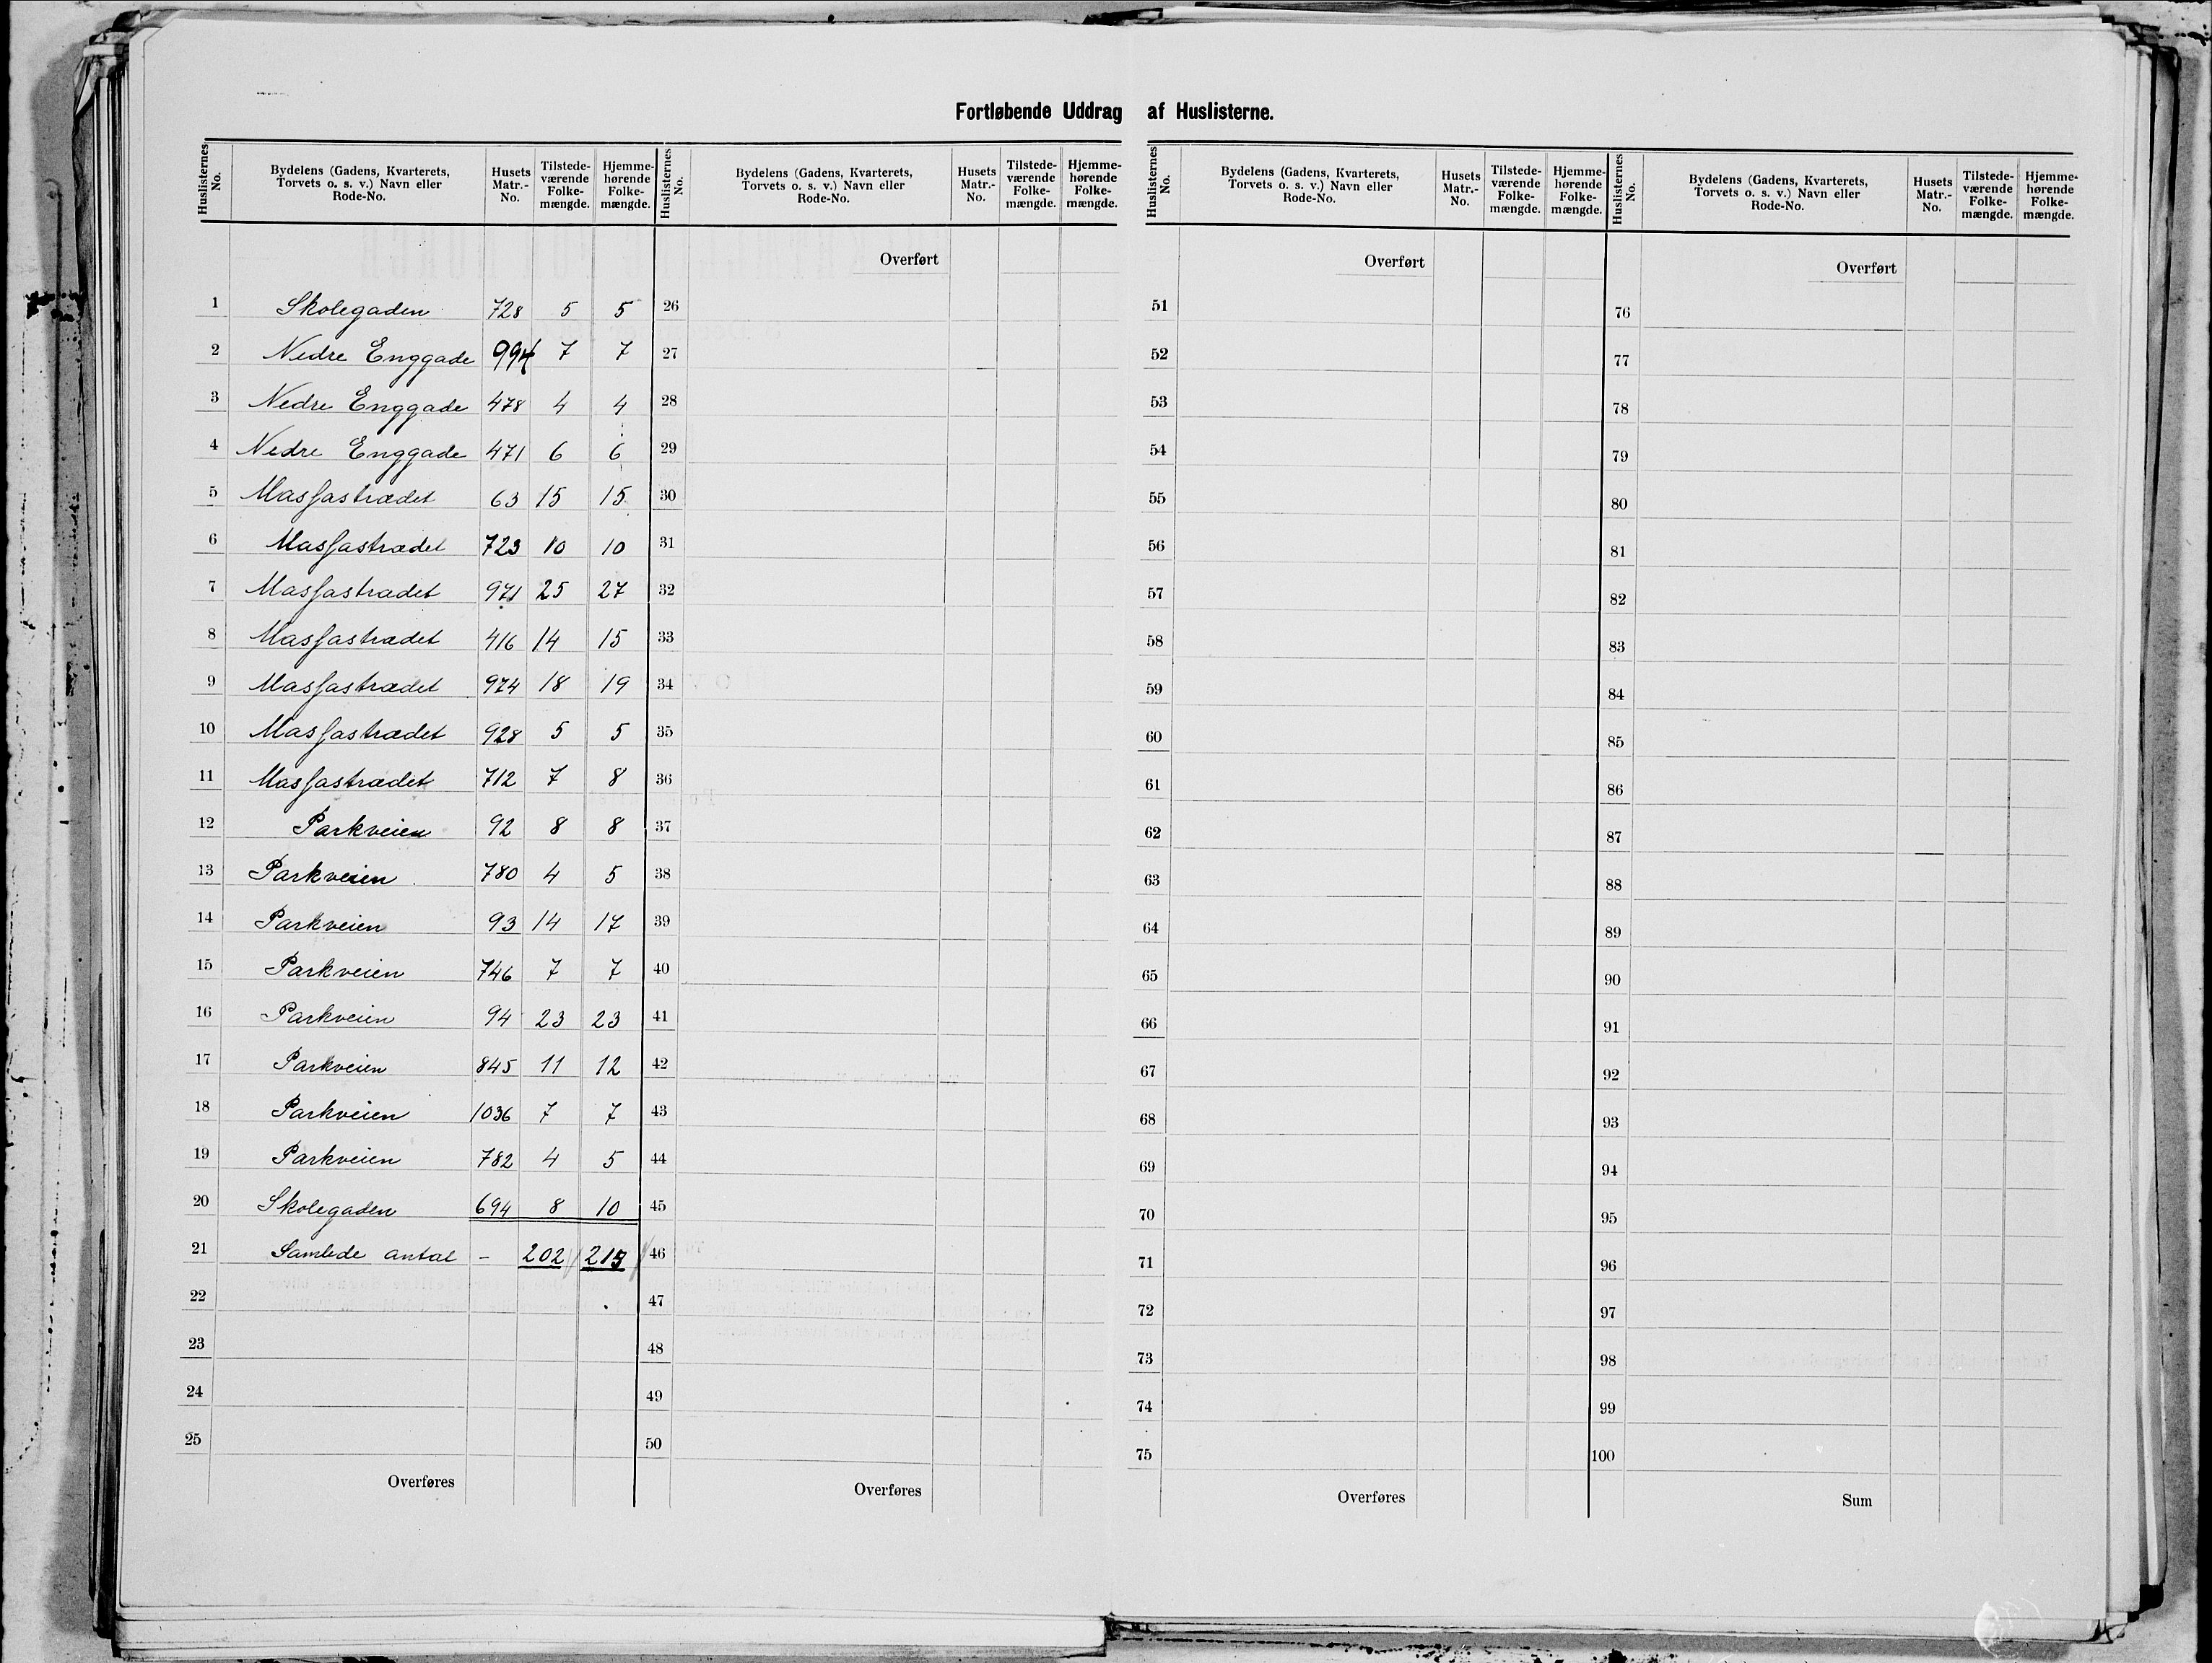 Fortløbende Uddrag af Huslisterne.
Huslisternes No. Bydelens (Gadens, Kvarterets, Torvets o. s. v.) Navn eller Rode-No. Husets Matr.-No. Tilstede-værende Folke-mængde. Hjemme-hørende Folke-mængde. Huslisternes No. Bydelens (Gadens, Kvarterets, Torvets o. s. v.) Navn eller Rode-No. Husets Matr.-No. Tilstede-værende Folke-mængde. Hjemme-hørende Folke-mængde. Huslisternes No. Bydelens (Gadens, Kvarterets, Torvets o. s. v.) Navn eller Rode-No. Husets Matr.-No. Tilstede-værende Folke-mængde. Hjemme-hørende Folke-mængde. Huslisternes No. Bydelens (Gadens, Kvarterets, Torvets o. s. v.) Navn eller Rode-No. Husets Matr.-No. Tilstede-værende Folke-mængde. Hjemme-hørende Folke-mængde.
Overført Overført Overført
1 Skolegaden 728 5 5 26 51 76
2 Nedre Enggade 994 7 7 27 52 77
3 Nedre Enggade 478 4 4 28 53 78
4 Nedre Enggade 471 6 6 29 54 79
5 Massastrædet 63 15 15 30 55 80
6 Massastrædet 723 10 10 31 56 81
7 Massastrædet 971 25 27 32 57 82
8 Massastrædet 416 14 15 33 58 83
9 Massastrædet 974 18 19 34 59 84
10 Massastrædet 928 5 5 35 60 85
11 Massastrædet 712 7 8 36 61 86
12 Parkveien 92 8 8 37 62 87
13 Parkveien 780 4 5 38 63 88
14 Parkveien 93 14 17 39 64 89
15 Parkveien 746 7 7 40 65 90
16 Parkveien 94 23 23 41 66 91
17 Parkveien 845 11 12 42 67 92
18 Parkveien 1036 7 7 43 68 93
19 Parkveien 782 4 5 44 69 94
20 Skolegaden 694 8 10 45 70 95
21 Samlede antal – 202 215 46 71 96
22 47 72 97
23 48 73 98
24 49 74 99
25 50 75 100
Overføres Overføres Overføres Sum